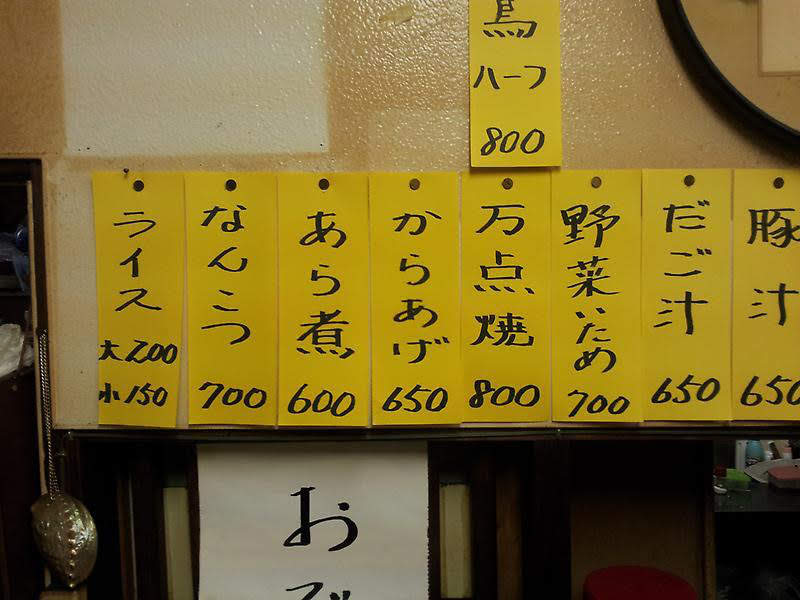 鳥
ハーフ
800
ライス
大200
小150
なんこつ
700
あら煮
600
からあげ
650
万点焼
800
野菜いため
700
だご汁
650
豚汁
650
お